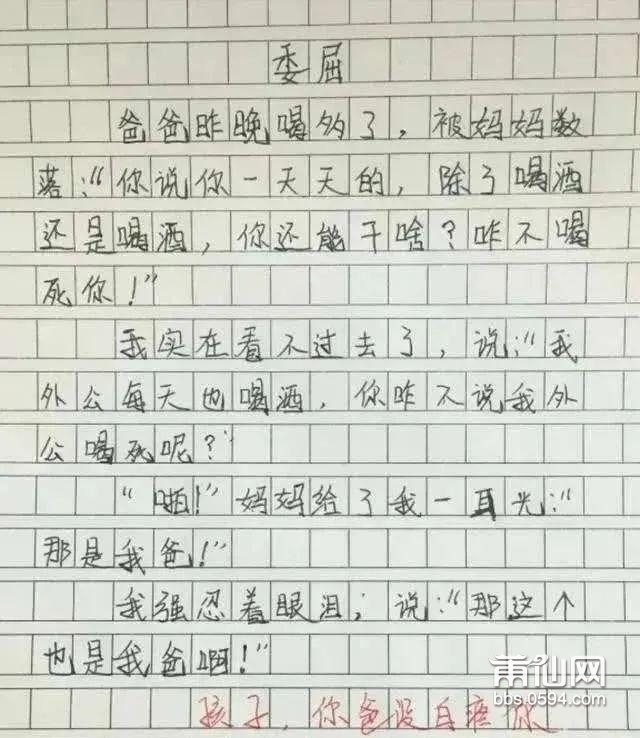 委屈
爸爸昨晚喝多了，被妈妈数
落：“你说你一天天的，除了喝酒
还是喝酒，你还能干啥？咋不喝
死你！”
我实在看不过去了，说：“我
外公每天也喝酒，你咋不说我外
公喝死呢？”
“啪！”妈妈给了我一耳光：“
那是我爸！”
我强忍着眼泪，说：“那这个
也是我爸啊！”
孩子，你爸没白疼你
莆仙网
bbs.0594.com